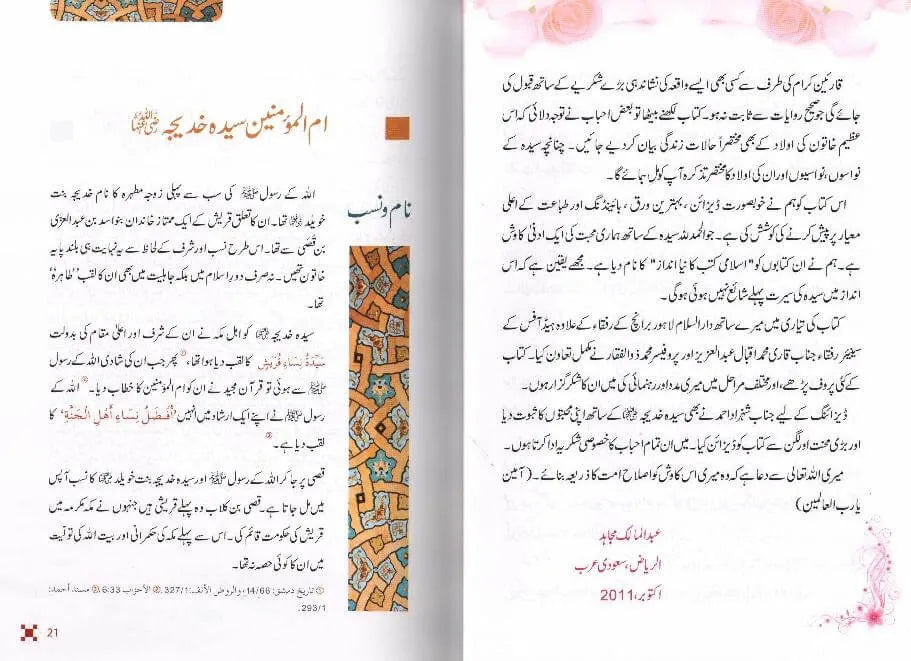 قارئین کرام کی طرف سے کسی بھی ایسے واقعہ کی نشاندہی بڑے شکریے کے ساتھ قبول کی
جائے گی جو صحیح روایات سے ثابت نہ ہو۔ کتاب لکھنے بیٹھا تو بعض احباب نے توجہ دلائی کہ اس
عظیم خاتون کی اولاد کے بھی مختصراً حالات زندگی بیان کر دیے جائیں۔ چنانچہ سیدہ کے
نواسوں، نواسیوں اور ان کی اولاد کا مختصر تذکرہ آپ کو مل جائے گا۔
اس کتاب کو ہم نے خوبصورت ڈیزائن، بہترین ورق، بائینڈنگ اور طباعت کے اعلیٰ
معیار پر پیش کرنے کی کوشش کی ہے۔ جو الحمدللہ سیدہ کے ساتھ ہماری محبت کی ایک ادنیٰ کاوش
ہے۔ ہم نے ان کتابوں کو "اسلامی کتب کا نیا انداز" کا نام دیا ہے۔ مجھے یقین ہے کہ اس
انداز میں سیدہ کی سیرت پہلے شائع نہیں ہوئی ہوگی۔
کتاب کی تیاری میں میرے ساتھ دارالسلام لاہور برانچ کے رفقاء کے علاوہ ہیڈ آفس کے
سینیئر رفقاء جناب قاری محمد اقبال عبدالعزیز اور پروفیسر محمد ذوالفقار نے مکمل تعاون کیا۔ کتاب
کے کئی پروف پڑھے، اور مختلف مراحل میں میری مدد اور رہنمائی کی میں ان کا شکر گزار ہوں۔
ڈیزائننگ کے لیے جناب شہزاد احمد نے بھی سیدہ خدیجہ رضی اللہ عنہا کے ساتھ اپنی محبتوں کا ثبوت دیا
اور بڑی محنت اور لگن سے کتاب کو ڈیزائن کیا۔ میں ان تمام احباب کا خصوصی شکریہ ادا کرتا ہوں۔
میری اللہ تعالیٰ سے دعا ہے کہ وہ میری اس کاوش کو اصلاح امت کا ذریعہ بنائے۔ (آمین
یا رب العالمین)
عبدالمالک مجاہد
الریاض، سعودی عرب
اکتوبر، 2011
ام المؤمنین سیدہ خدیجہ رضی اللہ عنہا
نام ونسب
اللہ کے رسول ﷺ کی سب سے پہلی زوجہ مطہرہ کا نام خدیجہ بنت
خویلد رضی اللہ عنہا تھا۔ ان کا تعلق قریش کے ایک ممتاز خاندان بنو اسد بن عبدالعزیٰ
بن قصی سے تھا۔ اس طرح نسب اور شرف کے لحاظ سے یہ نہایت ہی بلند پایہ
خاتون تھیں۔ نہ صرف دور اسلام میں بلکہ جاہلیت میں بھی ان کا لقب "طاہرہ"
تھا۔
سیدہ خدیجہ رضی اللہ عنہا کو اہل مکہ نے ان کے شرف اور اعلیٰ مقام کی بدولت
سَيِّدَةُ نِسَاءِ قُرَيْشٍ کا لقب دیا ہوا تھا،① پھر جب ان کی شادی اللہ کے رسول
ﷺ سے ہوئی تو قرآن مجید نے ان کو ام المؤمنین کا خطاب دیا۔② اللہ کے
رسول ﷺ نے اپنے ایک ارشاد میں انہیں "أَفْضَلُ نِسَاءِ أَهْلِ الْجَنَّةِ" کا
لقب دیا ہے۔③
قصی پر جا کر اللہ کے رسول ﷺ اور سیدہ خدیجہ بنت خویلد رضی اللہ عنہا کا نسب آپس
میں مل جاتا ہے۔ قصی بن کلاب وہ پہلے قریشی ہیں جنہوں نے مکہ مکرمہ میں
قریش کی حکومت قائم کی۔ اس سے پہلے مکہ کی حکمرانی اور بیت اللہ کی تولیت
میں ان کا کوئی حصہ نہ تھا۔
① تاريخ دمشق: 14/66، والروض الأنف: 327/1. ② الأحزاب 6:33. ③ مسند أحمد:
293/1.
21